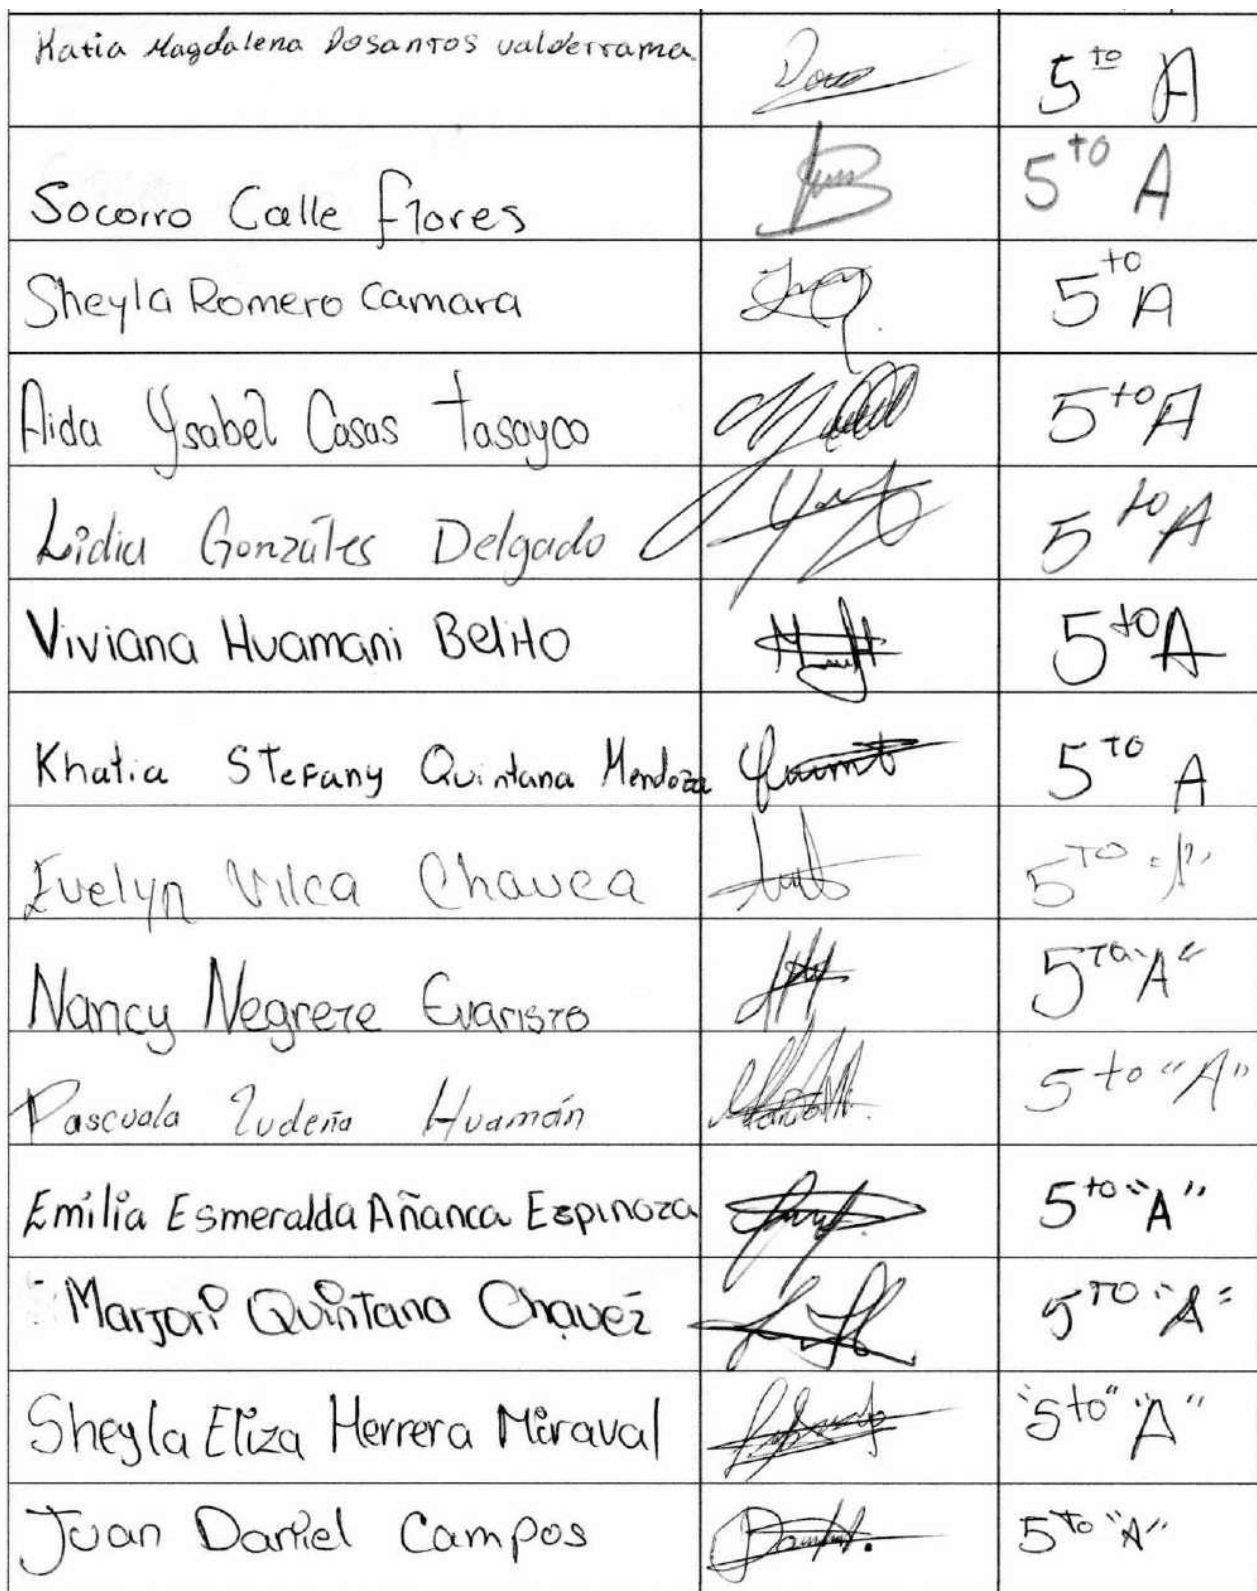 Katia Magdalena Dosantos valderrama 5to A
Socorro Calle Flores 5to A
Sheyla Romero Camara 5to A
Aida Ysabel Casas Tasayco 5to A
Lidia Gonzáles Delgado 5to A
Viviana Huamani Belito 5to A
Khatia Stefany Quintana Mendoza 5to A
Evelyn Vilca Chauca 5to "A"
Nancy Negrete Evaristo 5to "A"
Pascuala Ludeña Huamán 5to "A"
Emilia Esmeralda Añanca Espinoza 5to "A"
Marjori Quintana Chavez 5to "A"
Sheyla Eliza Herrera Miraval "5to" "A"
Juan Daniel Campos 5to "A"